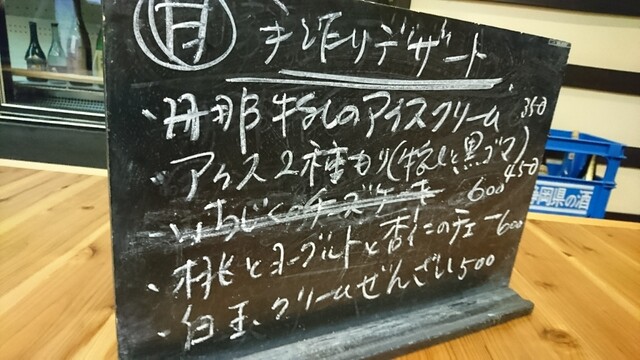 甘 手作りデザート
・丹那牛乳のアイスクリーム 350
・アイス2種もり(牛乳と黒ゴマ) 450
・いちじくのチーズケーキ 600
・桃とヨーグルトと杏仁のジェラー 600
・白玉、クリームぜんざい 500
静岡県の酒